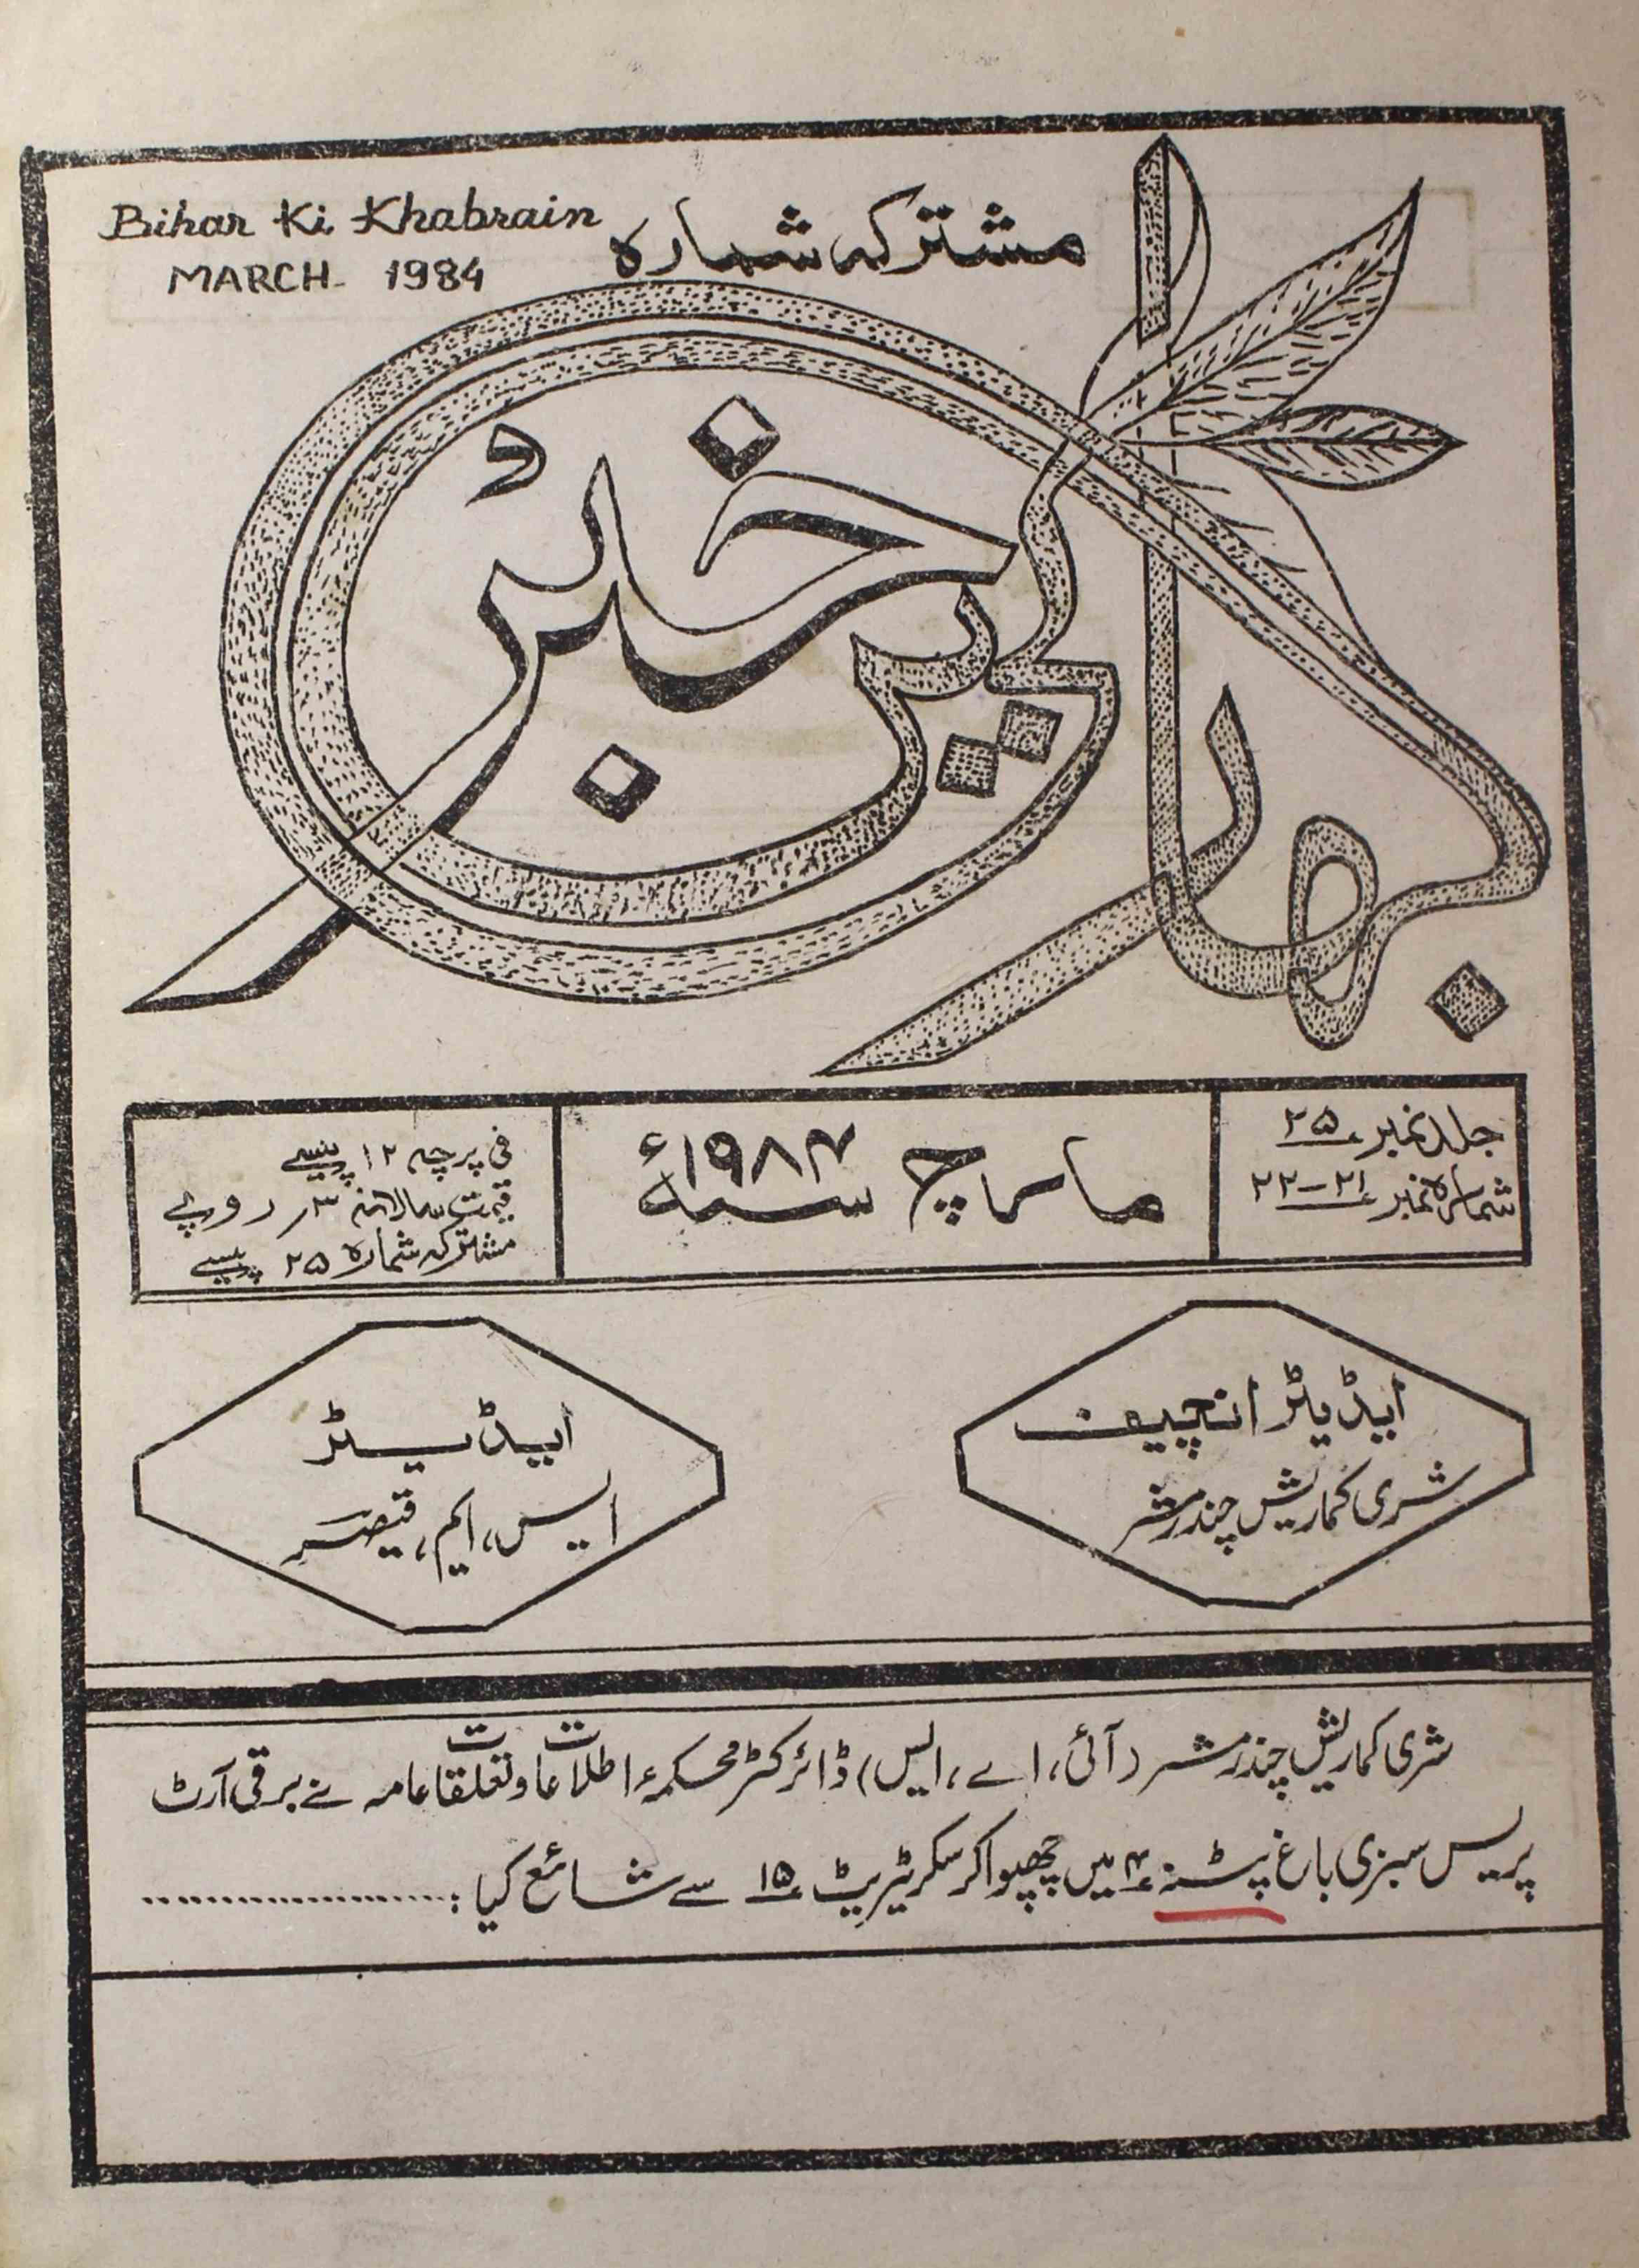 Bihar Ki Khabrain
MARCH- 1984
مشترکہ شمارہ
بہار کی خبریں
جلد نمبر ۲۵
شمارہ نمبر ۲۱-۲۲
مارچ سنہ ۱۹۸۴ء
فی پرچہ ۱۲ پیسے
قیمت سالانہ ۳ر روپے
مشترکہ شمارہ ۲۵ پیسے
ایڈیٹر انچیف
شری کماریش چندر مشر
ایڈیٹر
ایس، ایم، قیصر
شری کماریش چندر مشر (آئی، اے، ایس) ڈائرکٹر محکمۂ اطلاعات و تعلقات عامہ نے برقی آرٹ
پریس سبزی باغ پٹنہ ۴ میں چھپوا کر سکریٹریٹ ۱۵ سے شائع کیا :....................